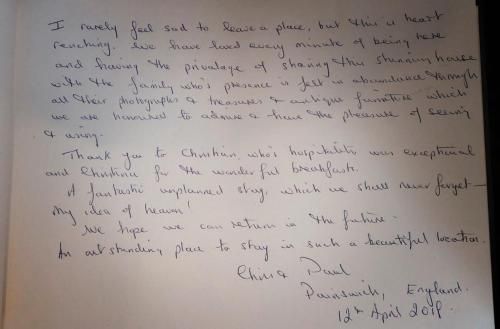 I rarely feel sad to leave a place, but this is heart
renching. We have loved every minute of being here
and having the privalage of sharing this stunning house
with the family who's presence is felt in abundance through
all their photographs & treasures & antique furniture which
we are honoured to admire & have the pleasure of seeing
& using.
Thank you to Christian, who's hospitality was exceptional
and Christina for the wonderful breakfasts.
A fantastic unplanned stay, which we shall never forget –
My idea of heaven!
We hope we can return in the future.
An outstanding place to stay in such a beautiful location.
Chris & Paul
Painswick, England.
12th April 2018.